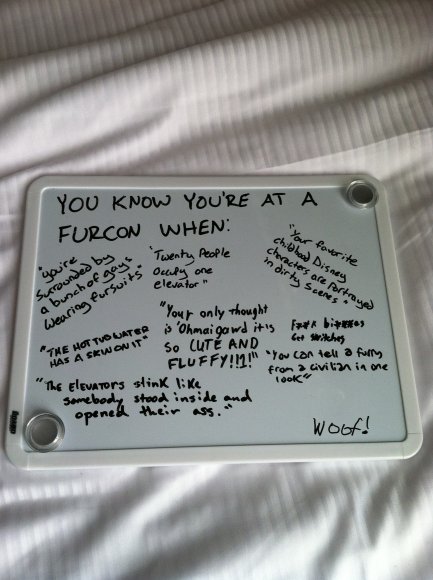 YOU KNOW YOU'RE AT A
FURCON WHEN:
"You're
Surrounded by
a bunch of
wearing fursuits"
"Twenty People
Occupy one
elevator"
"Your favorite
childhood Disney
characters are Portrayed
in dirty scenes"
"THE HOT TUB WATER
HAS A SKIN ON IT"
"Your only thought
is 'Ohmaigawd it is
SO CUTE AND
FLUFFY!!1!'"
F*** bi***es
Get stitches
"You can tell a furry
from a civilian in one
look"
"The Elevators stink like
somebody stood inside and
opened their ass."
Woof!